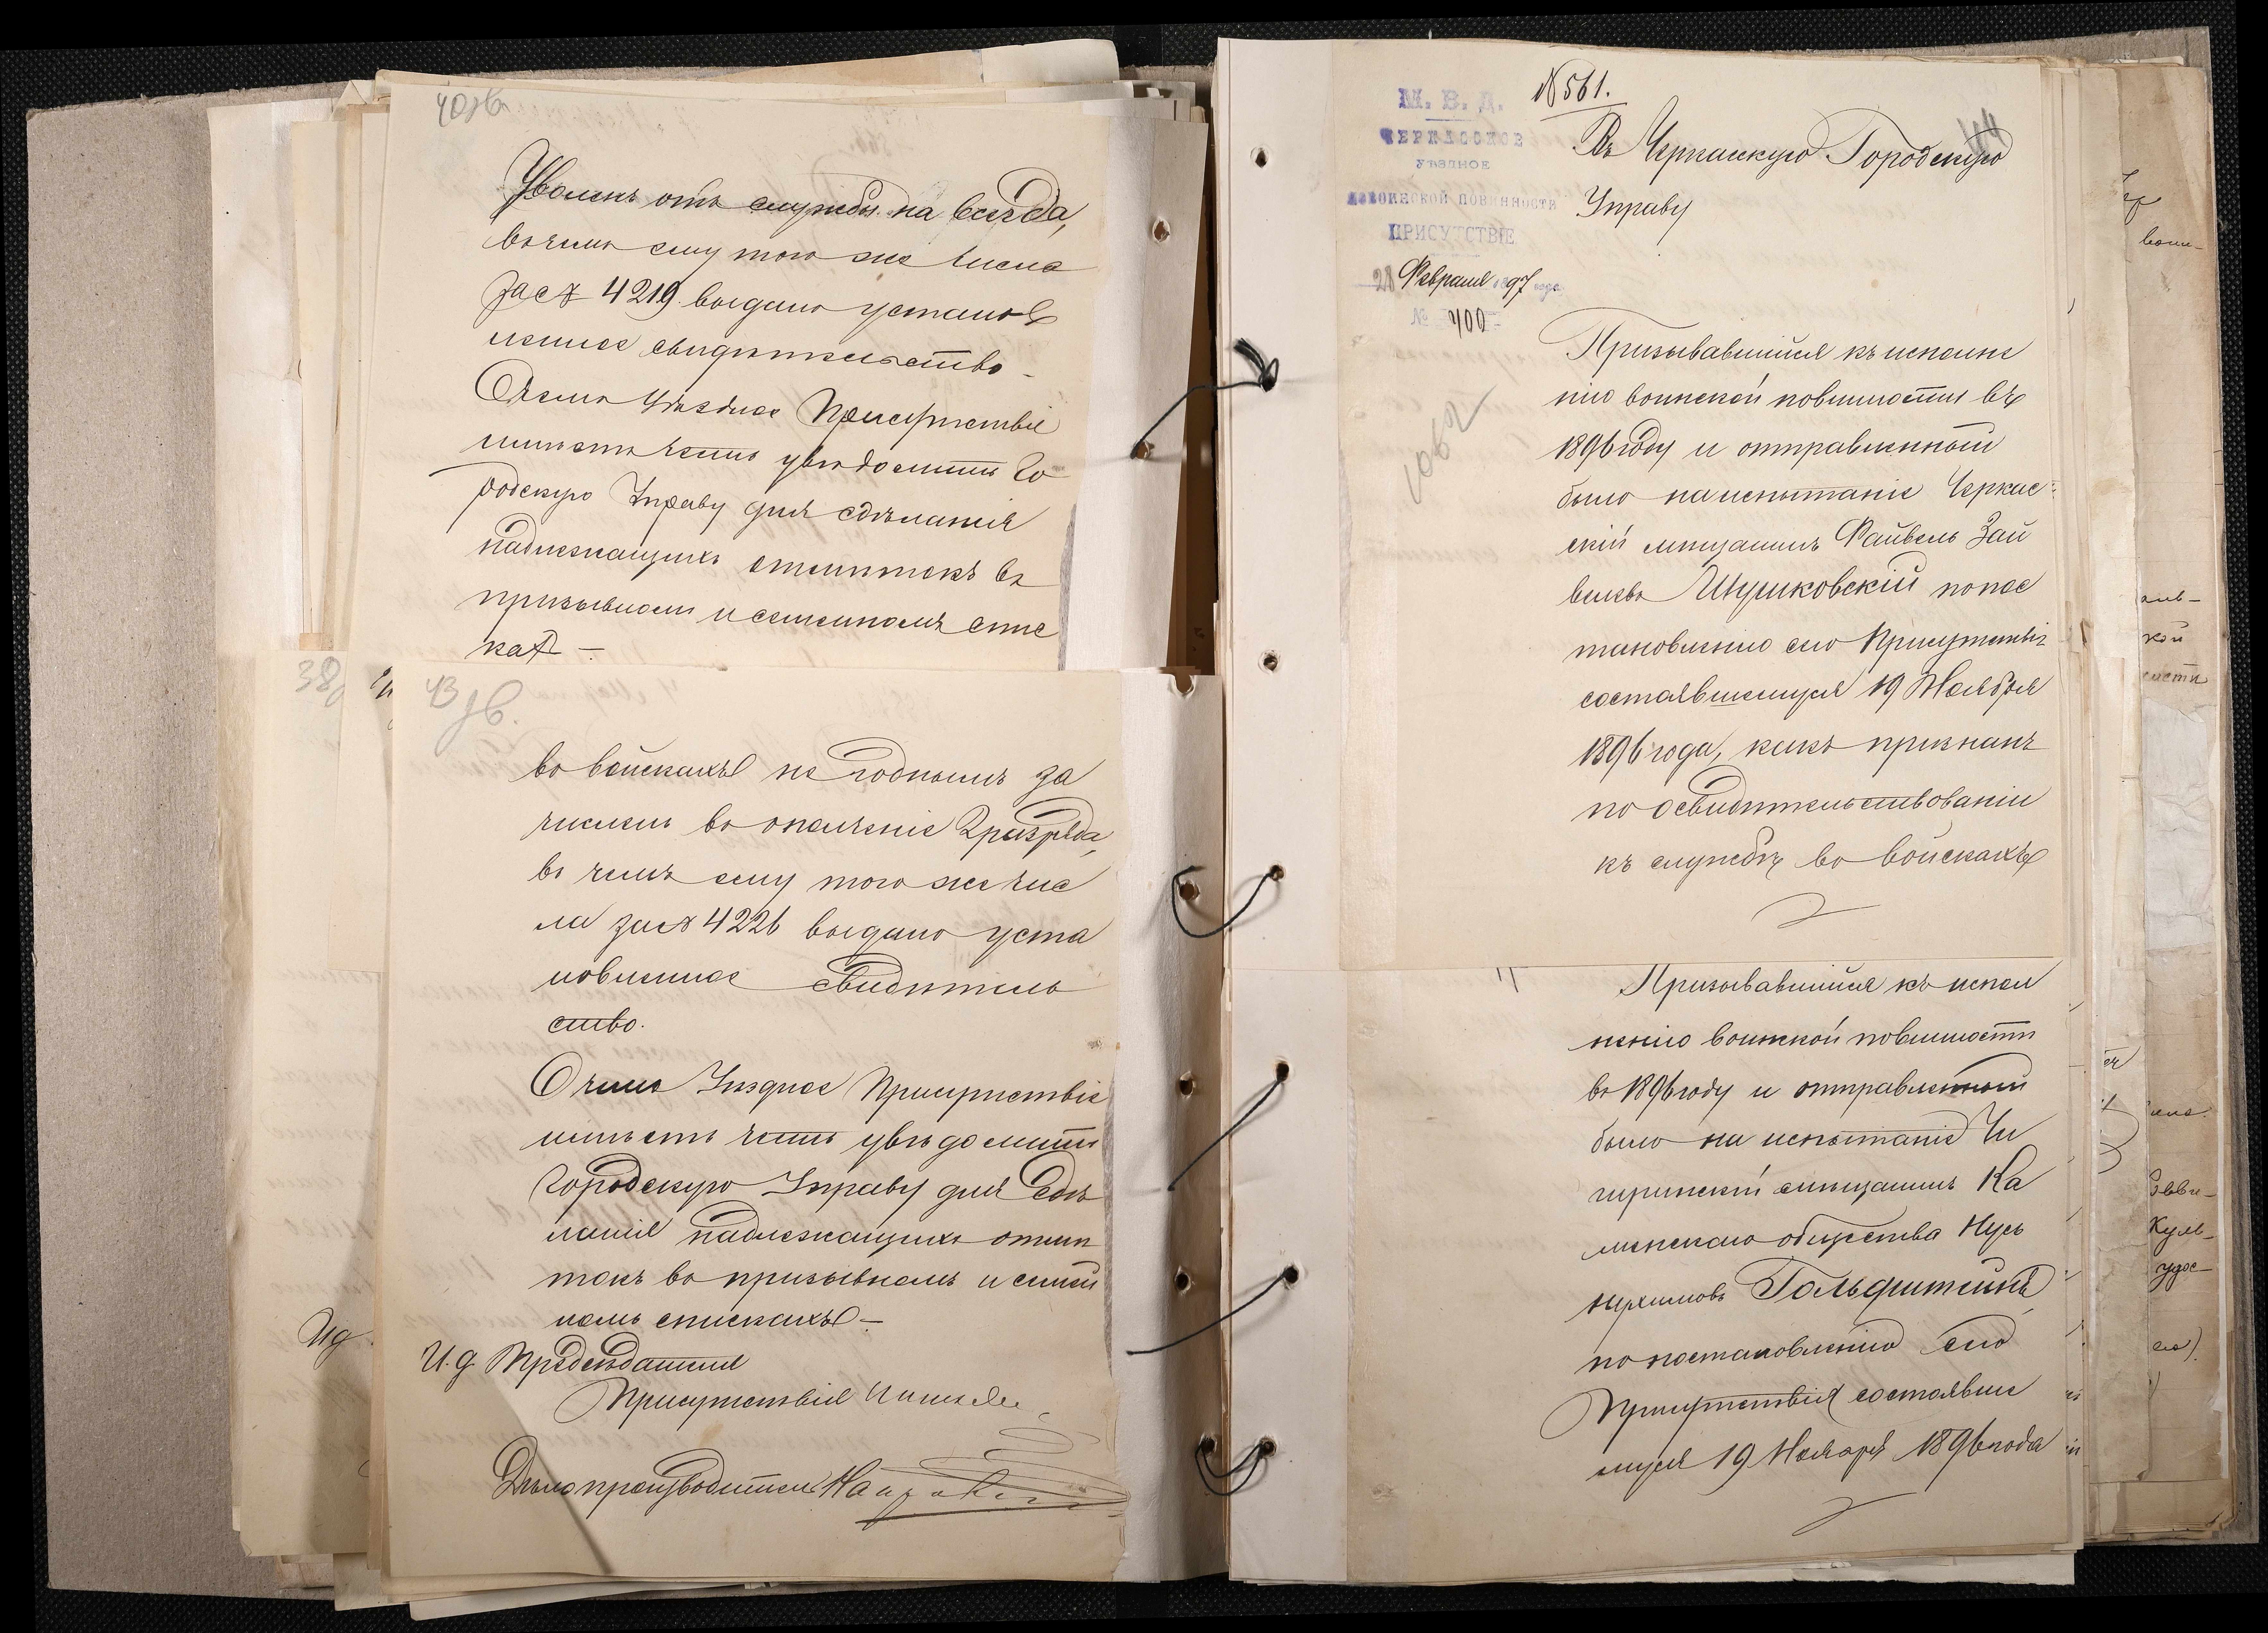 40 зв.
Уволенъ отъ службы на всегда,
въ чемъ ему того же числа
за № 4219 выдано установ
ленное свидѣтельство –
О чемъ Уѣздное Присутствіе
имѣетъ честь увѣдомить Го
родскую Управу для сдѣланія
надлежащихъ отмѣтокъ въ
призывномъ и семейномъ спис
кахъ –
38
43 зв.
во войскахъ не годнымъ за
численъ въ ополченіе 2 разряда,
въ чемъ ему того же чис
ла за № 4226 выдано уста
новленное свидѣтель
ство.
О чемъ Уѣздное Присутствіе
имѣетъ честь увѣдомить
Городскую Управу для сдѣ
ланія надлежащихъ отмѣ
токъ въ призывномъ и семей
номъ спискахъ –
И.д. Предсѣдателя
Присутствія
Дѣлопроизводитель
И д
№ 561.
М. В. Д.
ЧЕРКАССКОЕ
УѢЗДНОЕ
ПО ВОИНСКОЙ ПОВИННОСТИ
ПРИСУТСТВІЕ
28 Февраля 1897 года
№ 400
44
Въ Черкасскую Городскую
Управу
1062
Призывавшійся къ исполне
нію воинской повинности въ
1896 году и отправленный
было на испытаніе Черкас=
скій мѣщанинъ Файвель Зай
велевъ Шушковскій по пос
тановленію сего Присутствія
состоявшемуся 19 Ноября
1896 года, какъ признанъ
по освидѣтельствованіи
къ службѣ во войскахъ
Призывавшійся къ испол
ненію воинской повинности
въ 1896 году и отправленный
было на испытаніе Чи
гиринскій мѣщанинъ Ка
менскаго общества Нусь
Нухимовъ Гольдштейнъ
по постановленію сего
Присутствія состоявше
муся 19 Ноября 1896 года